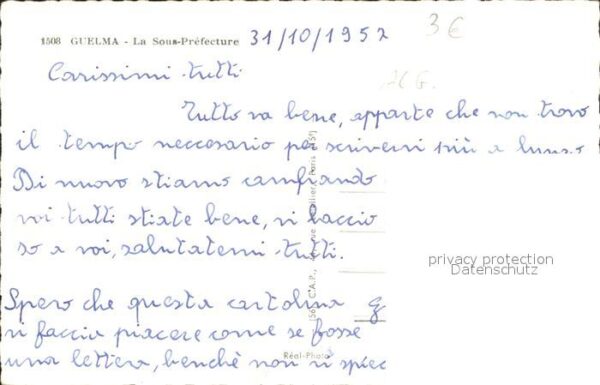 1508 GUELMA - La Sous-Préfecture 31/10/1952
3 €
Carissimi tutti
Tutto va bene, apparte che non trovo
il tempo neccesario per scrivervi più a lungo
Di nuovo stiamo
voi tutti stiate bene, vi baccio
so a voi, salutatemi tutti.
Spero che questa cartolina
vi faccia piacere come se fosse
una lettera, benchè non vi spiec
C.A.P., Paris
Réal-Photo
privacy protection
Datenschutz